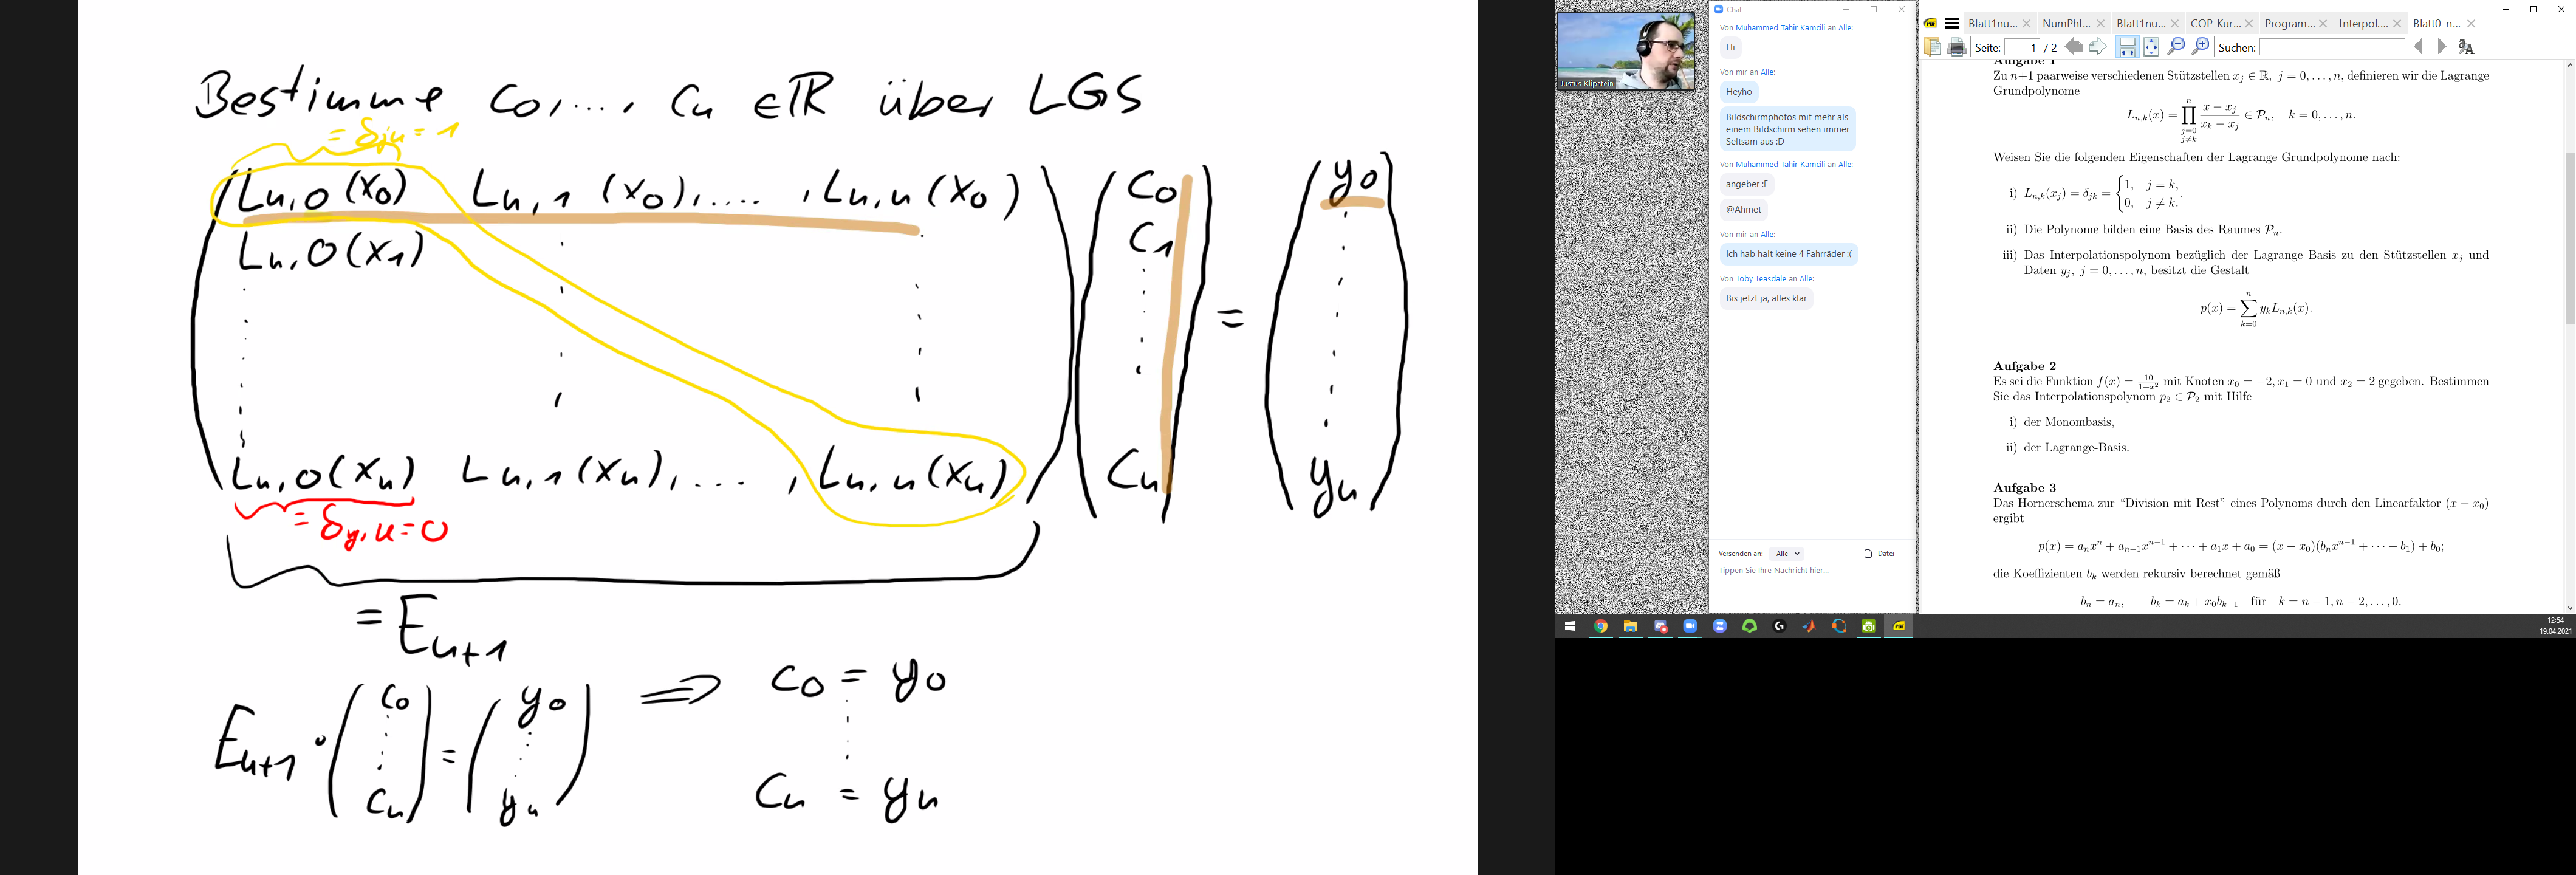 Bestimme c0, ..., cn ∈ ℝ über LGS
= δjk = 1
Ln,0 (x0) Ln,1 (x0), .... , Ln,n (x0) c0 y0
Ln,0(x1) c1
=
Ln,0(xn) Ln,1(xn), ... , Ln,n(xn) cn yn
= En+1
En+1 · (c0 ⋮ cn) = (y0 ⋮ yn) ⟹ c0 = y0
cn = yn
Justus Klipstein
Chat
Von Muhammed Tahir Kamcili an Alle:
Hi
Von mir an Alle:
Heyho
Bildschirmphotos mit mehr als
einem Bildschirm sehen immer
Seltsam aus :D
Von Muhammed Tahir Kamcili an Alle:
angeber :F
@Ahmet
Von mir an Alle:
Ich hab halt keine 4 Fahrräder :(
Von Toby Teasdale an Alle:
Bis jetzt ja, alles klar
Versenden an: Alle Datei
Tippen Sie Ihre Nachricht hier...
Blatt1nu... NumPhI... Blatt1nu... COP-Kur... Program... Interpol.... Blatt0_n...
Seite: 1 / 2 Suchen:
Aufgabe 1
Zu n+1 paarweise verschiedenen Stützstellen xj ∈ ℝ, j = 0, . . . , n, definieren wir die Lagrange
Grundpolynome
Ln,k(x) = ∏_{j=0, j≠k}^{n} (x − xj)/(xk − xj) ∈ Pn, k = 0, . . . , n.
Weisen Sie die folgenden Eigenschaften der Lagrange Grundpolynome nach:
i) Ln,k(xj) = δjk = { 1, j = k, 0, j ≠ k. .
ii) Die Polynome bilden eine Basis des Raumes Pn.
iii) Das Interpolationspolynom bezüglich der Lagrange Basis zu den Stützstellen xj und
Daten yj, j = 0, . . . , n, besitzt die Gestalt
p(x) = ∑_{k=0}^{n} yk Ln,k(x).
Aufgabe 2
Es sei die Funktion f(x) = 10/(1+x²) mit Knoten x0 = −2, x1 = 0 und x2 = 2 gegeben. Bestimmen
Sie das Interpolationspolynom p2 ∈ P2 mit Hilfe
i) der Monombasis,
ii) der Lagrange-Basis.
Aufgabe 3
Das Hornerschema zur “Division mit Rest” eines Polynoms durch den Linearfaktor (x − x0)
ergibt
p(x) = anxⁿ + an−1xⁿ⁻¹ + · · · + a1x + a0 = (x − x0)(bnxⁿ⁻¹ + · · · + b1) + b0;
die Koeffizienten bk werden rekursiv berechnet gemäß
bn = an, bk = ak + x0bk+1 für k = n − 1, n − 2, . . . , 0.
12:54
19.04.2021